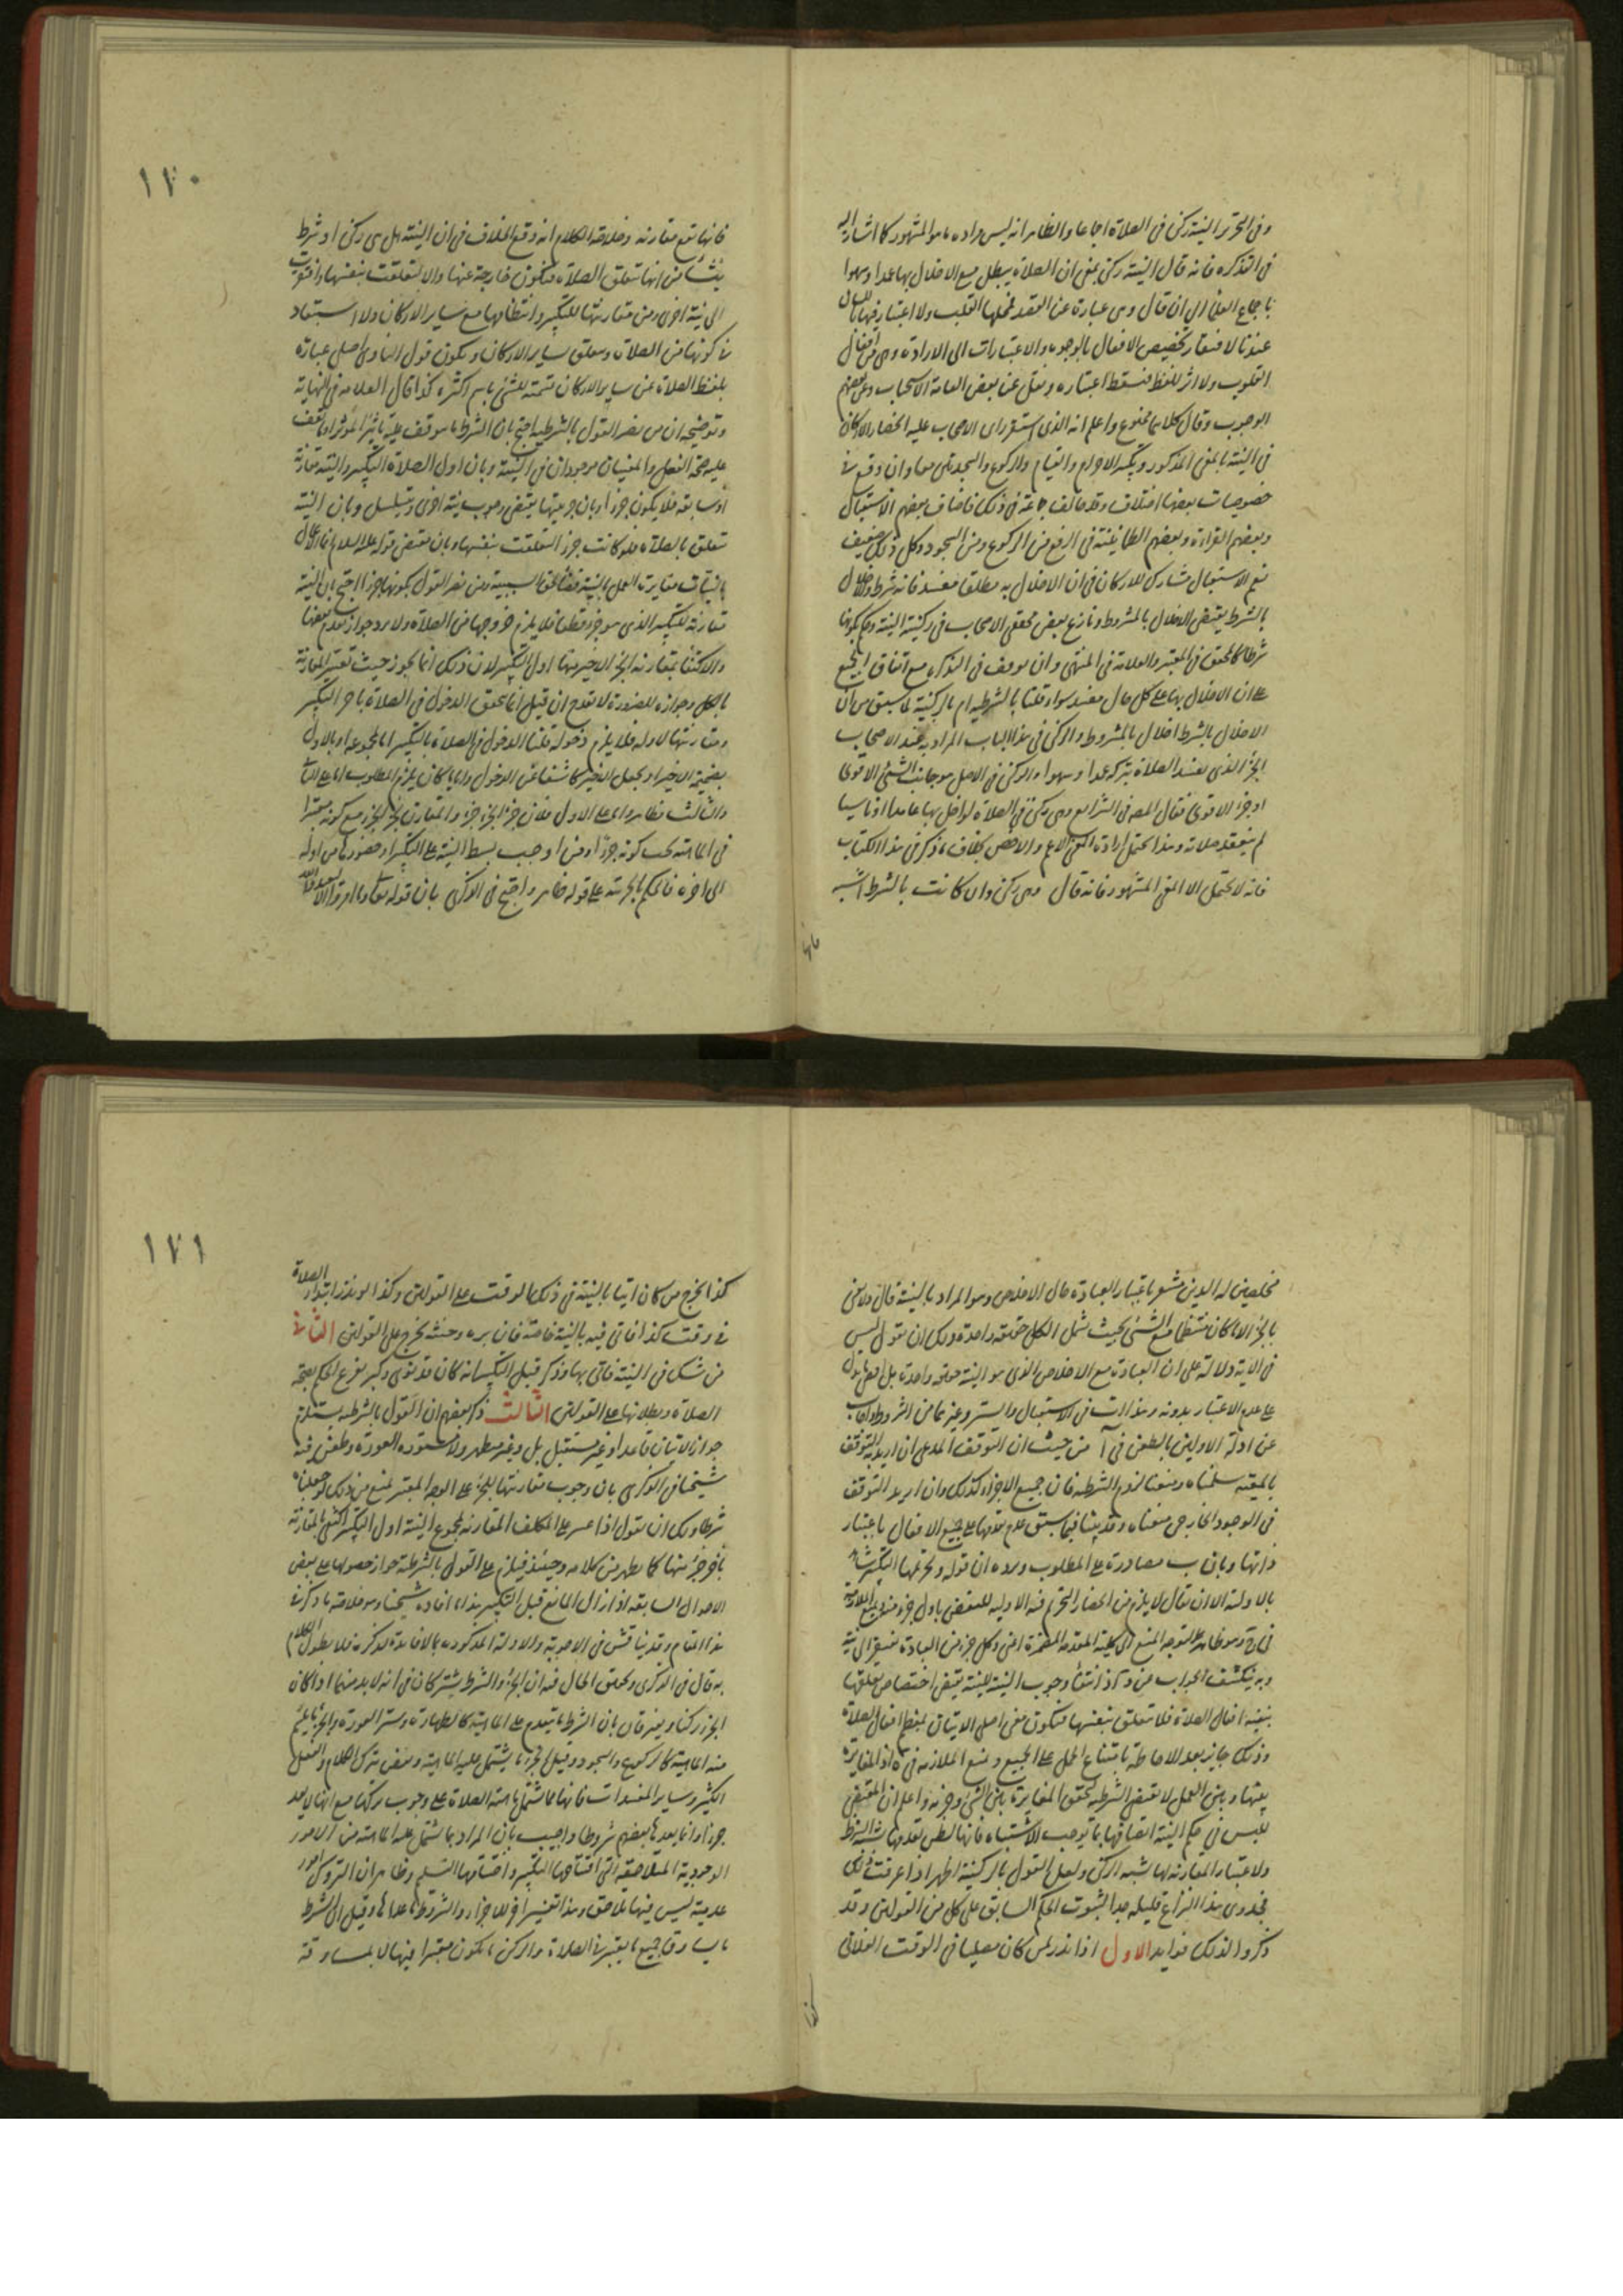 وفى التحرير النية ركن فى الصلاة اجماعا والظاهر انه ليس مراده ما هو المشهور كما اشار اليه
فى التذكره فانه قال النية ركن بمعنى ان الصلاة يبطل مع الاخلال بها عمدا وسهوا
باجماع العلماء الى ان قال وهى عبارة عن القصد فمحلها القلب ولا اعتبار فيها باللسان
عندنا لافتقار تخصيص الافعال بالوجوه والاعتبارات الى الارادة وهى من افعال
القلوب ولا اثر للفظ فسقط اعتباره ونقل عن بعض العامة الاستحباب وعن بعضهم
الوجوب وقال كلاهما ممنوع واعلم انه الذى استقر راى الاصحاب عليه انحصار الاركان
فى النية بالمعنى المذكور وتكبير الاحرام والقيام والركوع والسجدتين معا وان وقع فى
خصوصيات بعضها اختلاف وقد خالف جماعة فى ذلك فاضاف بعضهم الاستقبال
وبعضهم القراءة وبعضهم الطمانينة فى الرفع من الركوع ومن السجود وكل ذلك ضعيف
نعم الاستقبال مشارك للاركان فى ان الاخلال به مطلقا مفسد فانه شرط والاخلال
بالشرط يقتضى الاخلال بالمشروط ونازع بعض محققى الاصحاب فى ركنية النية وحكم بكونها
شرطا كالمحقق فى المعتبر والعلامة فى المنتهى وان توقف فى التذكره مع اتفاق الجميع
على ان الاخلال بها على كل حال مفسد سواء قلنا بالشرطية ام بالركنية لما سبق من ان
الاخلال بالشرط اخلال بالمشروط والركن فى هذا الباب المراد به عند الاصحاب
الجزء الذى تفسد الصلاة بتركه عمدا وسهوا والركن فى الاصل هو جانب الشىء الاقوى
او جزء الاقوى فقال المص فى الشرايع وهى ركن فى الصلاة لو اخل بها عامدا او ناسيا
لم ينعقد صلاته وهذا يحتمل ارادة المعنى الاعم والاخص بخلاف ما ذكر فى هذا الكتاب
فانه لا يحتمل الا المعنى المشهور فانه قال وهى ركن وان كانت بالشرط اشبه
فانها
١٧٠
فانها تقع مقارنه وخلاصة الكلام انه وقع الخلاف فى ان النية هل هى ركن او شرط
ينشأ من انها تتعلق بالصلاة فتكون خارجة عنها والا لتعلقت بنفسها وافتقرت
الى نية اخرى ومن مقارنتها للتكبير وانتظامها مع ساير الاركان ولا استبعاد
فى كونها من الصلاة وتتعلق بساير الاركان ويكون قول الناوى اصلى عبارة
بلفظ الصلاة عن ساير الاركان تسمية للشىء باسم اكثره كذا قال العلامه فى النهاية
وتوضيحه ان من نصر القول بالشرطية احتج بان الشرط ما يتوقف عليه تاثير المؤثر او يتوقف
عليه صحة الفعل والمعنيان موجودان فى النية وبان اول الصلاة التكبير والنية مقارنة
او سابقة فلا يكون جزءا وبان جزئيتها يقتضى وجوب نية اخرى ويتسلسل وبان النية
تتعلق بالصلاة فلو كانت جزءا لتعلقت بنفسها وبان مقتضى قوله عليه السلام انما الاعمال
بالنيات مغايرة العمل للنية قضاء لحق السببية ومن نصر القول بكونها جزءا احتج بان النية
مقارنة للتكبير الذى هو جزء قطعا فلا يلزم خروجها من الصلاة ولا يرد جواز تقدم بعضها
والاكتفاء بمقارنة الجزء الاخير منها اول التكبير لان ذلك انما يجوز حيث تعسر المقارنة
بالكل وجوازه للضرورة لا يقدح ان قيل انما يتحقق الدخول فى الصلاة باخر التكبير
ومقارنتها لاوله فلا يلزم دخوله قلنا الدخول فى الصلاة بالتكبير اما بمجموعه او بالاول
بضميمة الاخير او بجعل الاخير كاشفا عن الدخول وايا ما كان يلزم المطلوب اما على الثانى
والثالث فظاهر واما على الاول فلان جزء الجزء جزء والمقارن لجزء الجزء مع كونه معتبرا
فى الماهية يجب كونه جزءا ومن اوجب بسط النية على التكبير او حضورها من اوله
الى اخره فالحكم بالجزئية على قوله ظاهر واحتج فى الذكرى بان قوله تعالى وما امروا الا ليعبدوا الله
مخلصين له الدين مشعر باعتبار العبادة حال الاخلاص وهو المراد بالنية قال ولا نعنى
بالجزء الا ما كان منتظما مع الشىء بحيث شمل الكل حقيقة واحدة ولك ان تقول ليس
فى الاية دلالة على ان العبادة مع الاخلاص الذى هو النية حقيقة واحدة بل انما يدل
على عدم الاعتبار بدونه وهذا ات فى الاستقبال والستر وغيرهما من الشروط واجاب
عن ادلة الاولين بالطعن فى آ من حيث ان التوقف المدعى ان اريد به التوقف
بالمعية سلمناه ومنعنا لزوم الشرطية فان جميع الاجزاء كذلك وان اريد التوقف
فى الوجود الخارجى منعناه وقد بينا فيما سبق عدم تقدمها على جميع الافعال باعتبار
ذاتها وبان ب مصادرة على المطلوب ويرده ان قوله وتحريمها التكبير شاهد
بالاولية الا ان يقال لا يلزم من انحصار التحريم فيه الاولية
وبه ينكشف الجواب عن د اذ انتفاء وجوب النية للنية يقتضى اختصاص تعلقها
ببقية افعال الصلاة فلا تتعلق بنفسها فتكون معنى اصلى الاتيان بمعظم افعال الصلاة
وذلك جايز بعد الاحاطة بامتناع الحمل على الجميع ومنع الملازمة فى ه اذ المغايرة
بينها وبين العمل لا تقتضى الشرطية لتحقق المغايرة بين الشىء وجزئه واعلم ان المقتضى
للبس فى حكم النية اتصافها بما يوجب الاشتباه فانها لطى تقدمها شبه الشرط
ولاعتبار المقارنة لها شبه الركن ولعل القول بالركنية اظهر اذا عرفت ذلك
فجدوى هذا النزاع قليله جدا لثبوت الحكم السابق على كل من القولين وقد
ذكروا لذلك فوايد الاول اذا نذر لمن كان مصليا فى الوقت الفلانى
كذا
١٧١
كذا يخرج من كان اتيا بالنية فى ذلك الوقت على القولين وكذا لو نذر ابتداء الصلاة
فى وقت كذا فاتى فيه بالنية خاصة فان بره وحنثه يخرج على القولين الثانى
من شك فى النية فاتى بها وذكر قبل التكبير انه كان قد نوى وكبر يفرع الحكم بصحة
الصلاة وبطلانها على القولين الثالث ذكر بعضهم ان القول بالشرطية يستلزم
جواز الاتيان بها قاعدا وغير مستقبل بل وغير متطهر ولا مستور العورة وطعن فيه
شيخنا فى الذكرى بان وجوب مقارنتها للجزء على الوجه المعتبر يمنع من ذلك لو جعلناه
شرطا ولك ان تقول اذا عسر على المكلف المقارنة لمجموع النية اول التكبير اكتفى بالمقارنة
باخر جزء منها كما يظهر من كلامه وحينئذ فيلزم على القول بالشرطية جواز حصولها على بعض
الاحوال السابقة اذا زال المانع قبل التكبير هذا ما افاده شيخنا وهو خلاصة ما ذكر فى
هذا المقام وقد يناقش فى الاجوبة والادلة المذكورة بما لا فائدة لذكره فلا يطول الكلام
به قال فى الذكرى وتحقيق الحال فيه ان الجزء والشرط يشتركان فى انه لا بد منهما اذا كان
الجزء ركنا ويفترقان بان الشرط ما يتقدم على الماهية كالطهارة وستر العورة والجزء ما يلتئم
منه الماهية كالركوع والسجود وقيل الجزء ما يشتمل عليه الماهية ونقض بترك الكلام والفعل
الكثير وساير المفسدات فانها مما تشتمل ماهية الصلاة على وجوب تركها مع انها لا يعد
جزءا وانما يعدها بعضهم شروطا واجيب بان المراد بما تشتمل عليه الماهية من الامور
الوجودية المتلاحقة التى افتتاحها التكبير واختتامها التسليم وظاهر ان التروك امور
عدمية ليس فيها تلاحق وهذا تفسير اخر للاجزاء والشروط ما عداها وقيل ان الشرط
ما يساوق جميع ما يعتبر فى الصلاة والركن ما يكون معتبرا فيها لا بمساوقة